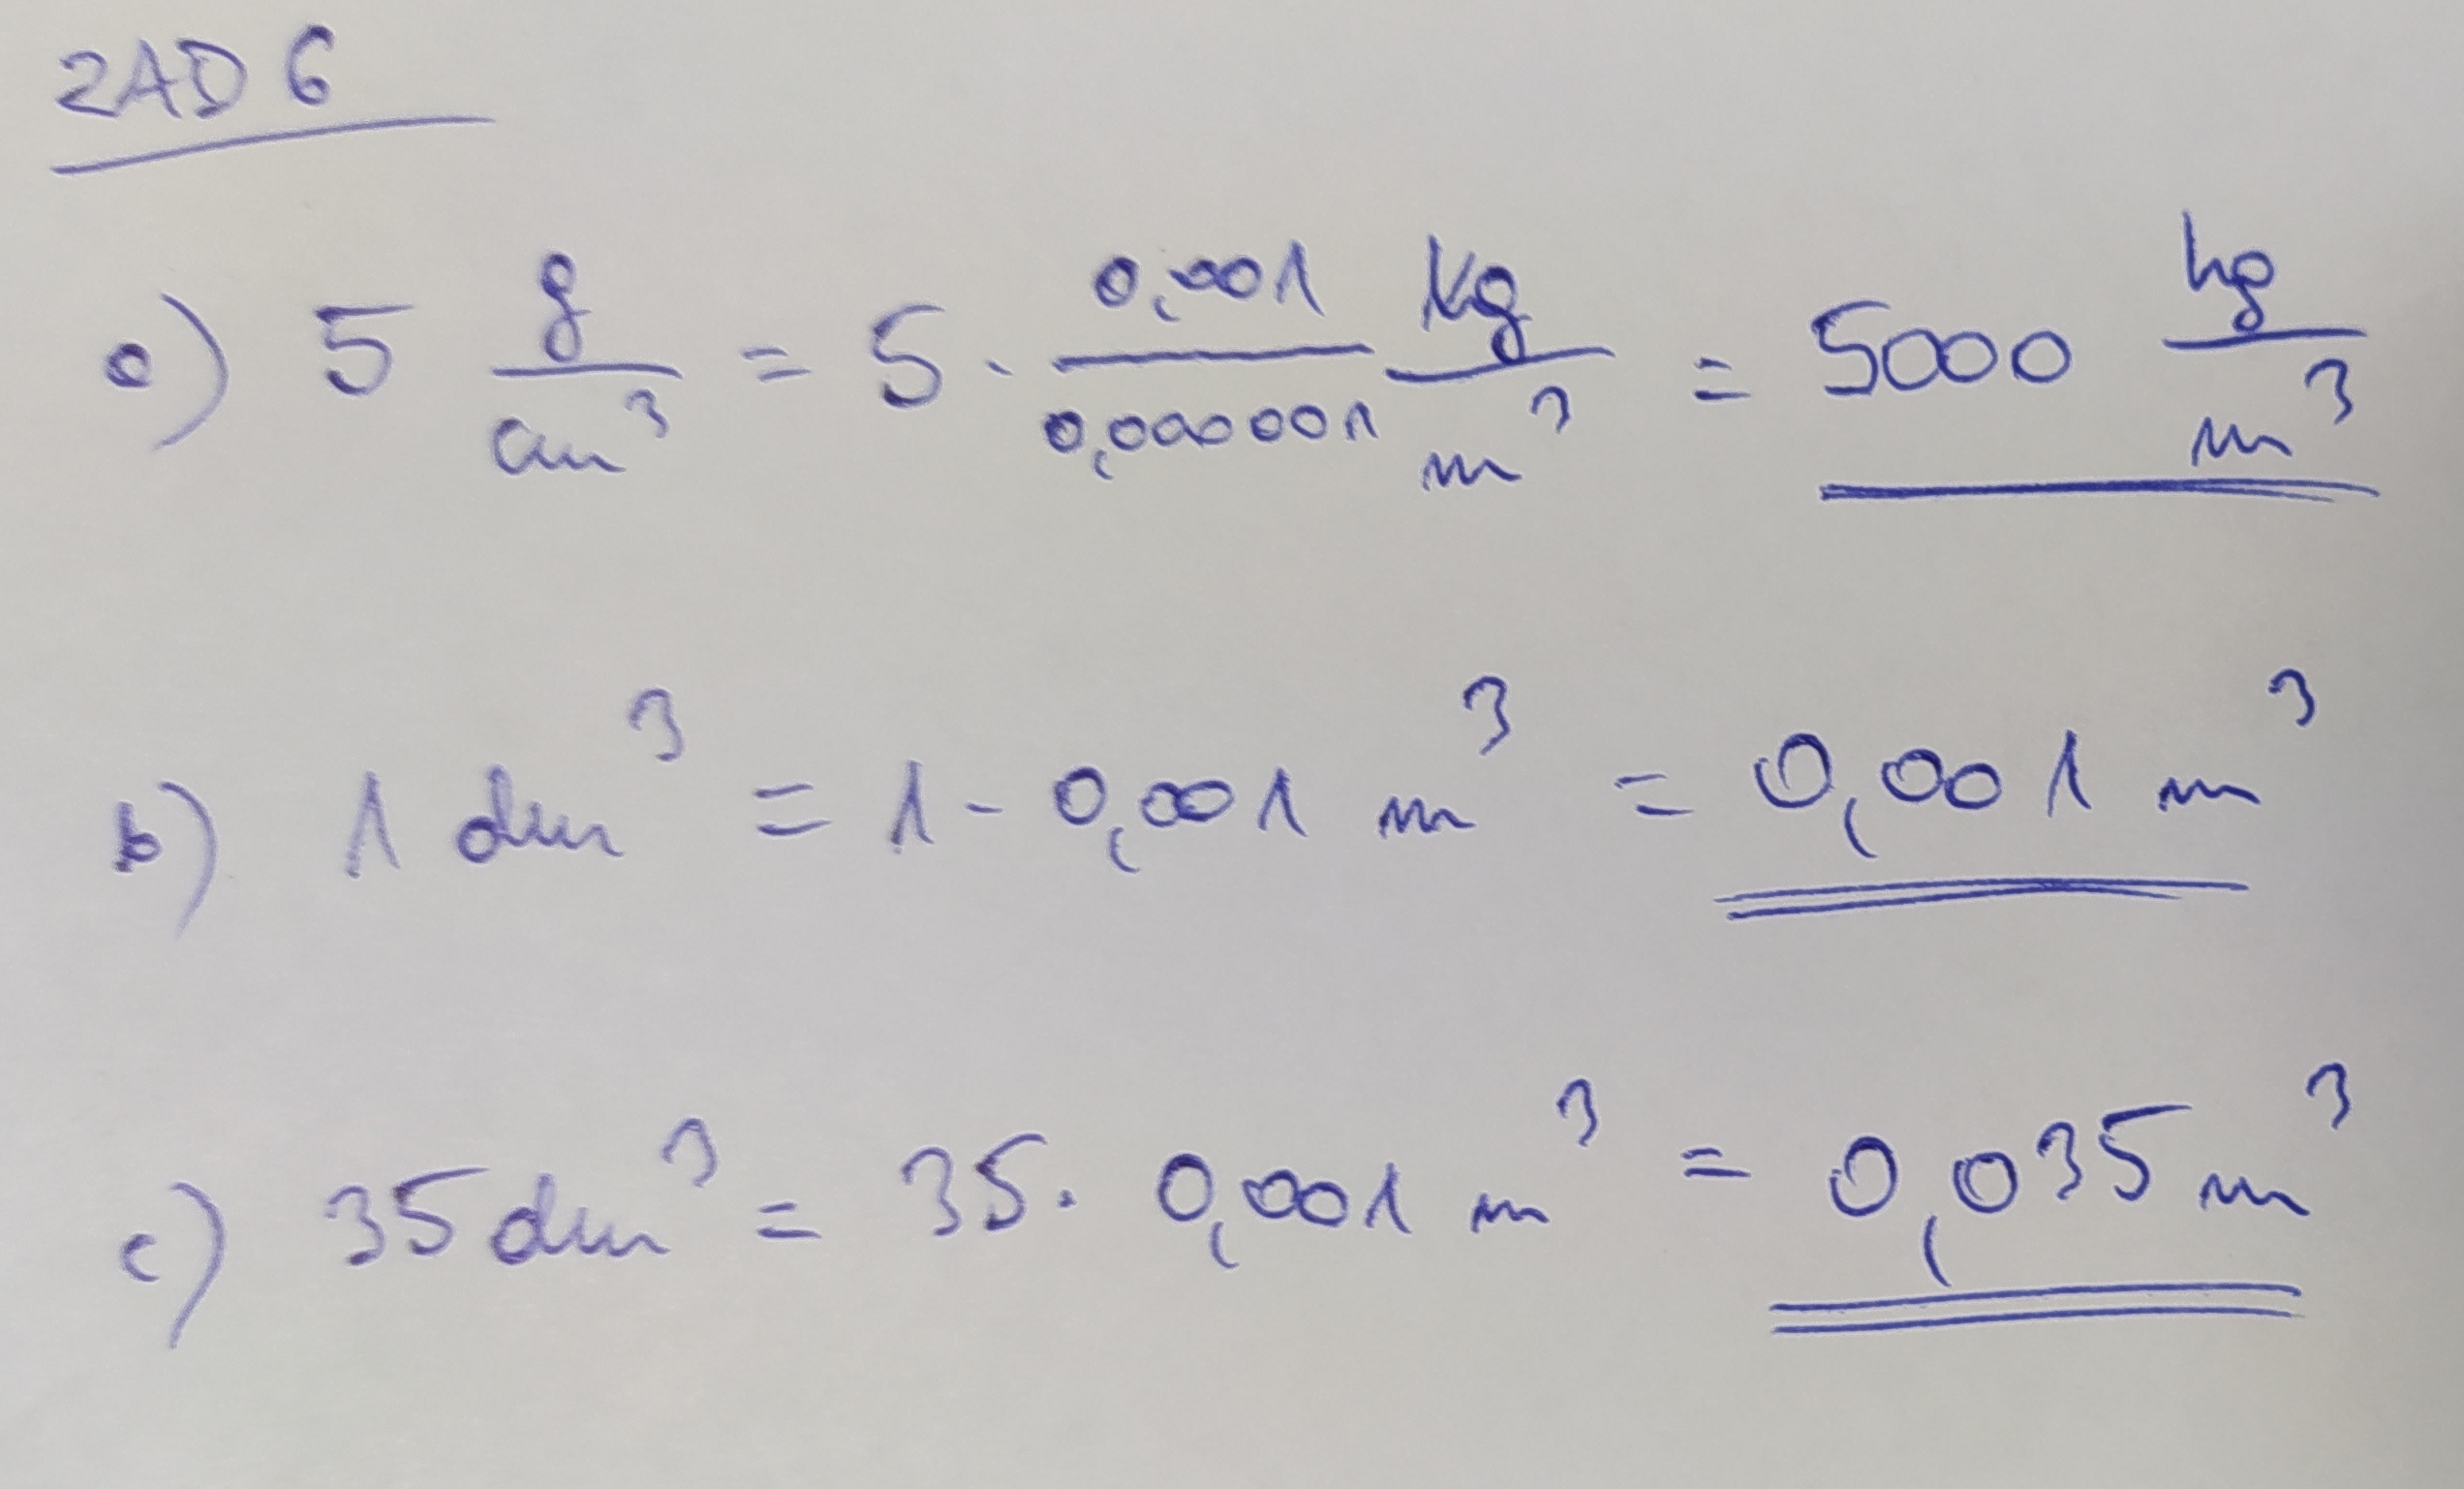 ZAD 6
a) 5 g/cm³ = 5 · 0,001/0,000001 kg/m³ = 5000 kg/m³
b) 1 dm³ = 1 - 0,001 m³ = 0,001 m³
c) 35 dm³ = 35 · 0,001 m³ = 0,035 m³